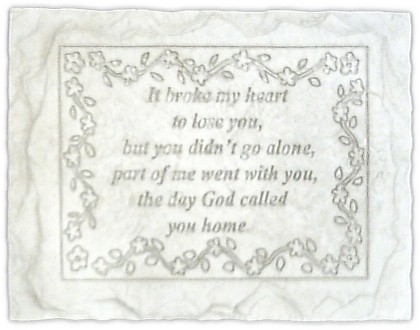 It broke my heart
to lose you,
but you didn't go alone,
part of me went with you,
the day God called
you home